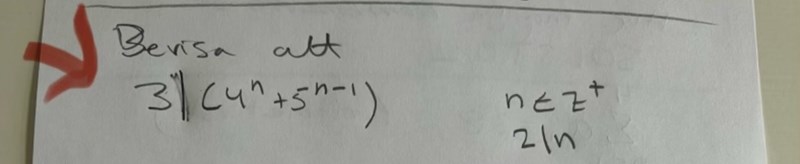 Bevisa att
3|(4ⁿ+5ⁿ⁻¹) n∈Z⁺
2|n